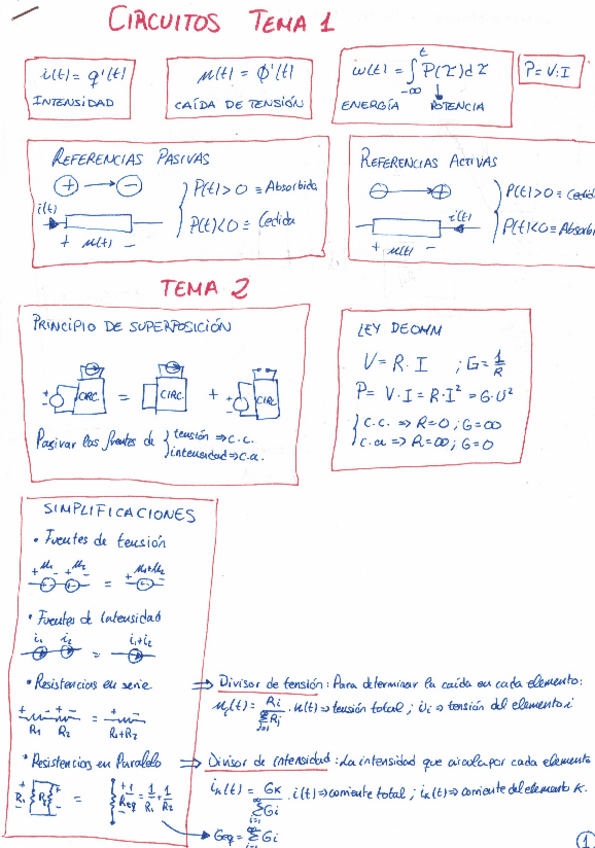 CIRCUITOS TEMA 1
i(t) = q'(t)
INTENSIDAD
u(t) = Φ'(t)
CAÍDA DE TENSIÓN
w(t) = ∫ P(τ)dτ
t
-∞
ENERGÍA POTENCIA
P = V·I
REFERENCIAS PASIVAS
+ → -
i(t)
+ u(t) -
P(t) > 0 ≡ Absorbida
P(t) < 0 ≡ Cedida
REFERENCIAS ACTIVAS
- → +
i(t)
+ u(t) -
P(t) > 0 = Cedid
P(t) < 0 = Absorbi
TEMA 2
PRINCIPIO DE SUPERPOSICIÓN
CIRC. = CIRC. + CIRC.
Pasivar las fuentes de { tensión ⇒ c.c.
intensidad ⇒ c.a.
LEY DE OHM
V = R · I ; G = 1/R
P = V·I = R·I² = G·U²
c.c. ⇒ R=0 ; G=∞
c.a ⇒ R=∞ ; G=0
SIMPLIFICACIONES
• Fuentes de tensión
+ u1 - + u2 - = + u1+u2 -
• Fuentes de intensidad
i1 i2 = i1+i2
• Resistencias en serie ⇒ Divisor de tensión: Para determinar la caída en cada elemento:
R1 R2 = R1+R2
ui(t) = Ri / Σ Rj · u(t) ⇒ tensión total ; ui ⇒ tensión del elemento i
• Resistencias en Paralelo ⇒ Divisor de intensidad: La intensidad que circula por cada elemento
R1 R2 = 1/Req = 1/R1 + 1/R2
iK(t) = GK / Σ Gi · i(t) ⇒ corriente total ; iK(t) ⇒ corriente del elemento K.
Geq = Σ Gi
1